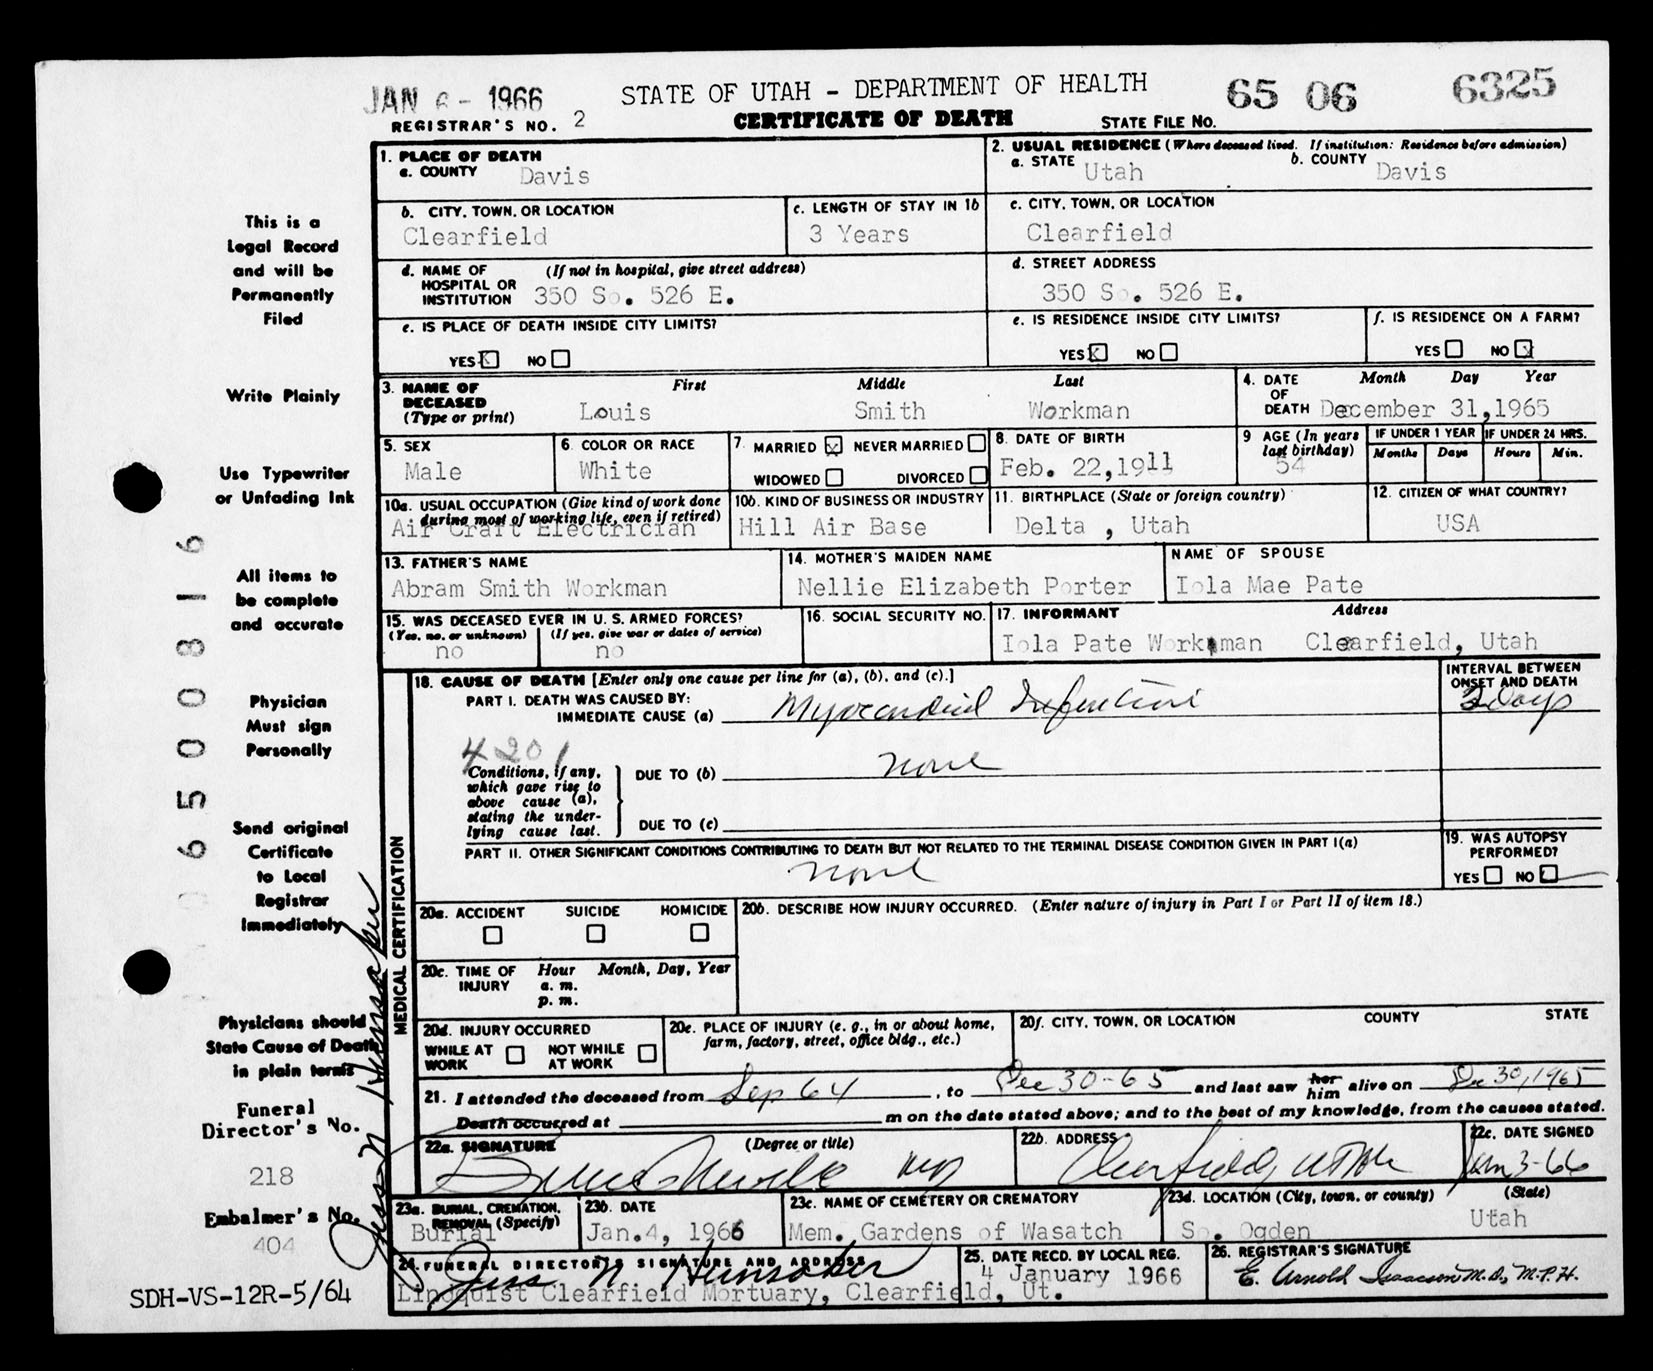 JAN 6 - 1966 STATE OF UTAH - DEPARTMENT OF HEALTH 65 06 6325
REGISTRAR'S NO. 2 CERTIFICATE OF DEATH STATE FILE NO.
1. PLACE OF DEATH
a. COUNTY Davis
2. USUAL RESIDENCE (Where deceased lived. If institution: Residence before admission)
a. STATE Utah b. COUNTY Davis
b. CITY, TOWN, OR LOCATION
Clearfield
c. LENGTH OF STAY IN 1b
3 Years
c. CITY, TOWN, OR LOCATION
Clearfield
d. NAME OF (If not in hospital, give street address)
HOSPITAL OR
INSTITUTION 350 So. 526 E.
d. STREET ADDRESS
350 So. 526 E.
e. IS PLACE OF DEATH INSIDE CITY LIMITS?
YES X NO
e. IS RESIDENCE INSIDE CITY LIMITS?
YES X NO
f. IS RESIDENCE ON A FARM?
YES NO X
3. NAME OF First Middle Last
DECEASED
(Type or print) Louis Smith Workman
4. DATE Month Day Year
OF
DEATH December 31, 1965
5. SEX
Male
6. COLOR OR RACE
White
7. MARRIED X NEVER MARRIED
WIDOWED DIVORCED
8. DATE OF BIRTH
Feb. 22, 1911
9 AGE (In years
last birthday)
54
IF UNDER 1 YEAR IF UNDER 24 HRS.
Months Days Hours Min.
10a. USUAL OCCUPATION (Give kind of work done
during most of working life, even if retired)
Air Craft Electrician
10b. KIND OF BUSINESS OR INDUSTRY
Hill Air Base
11. BIRTHPLACE (State or foreign country)
Delta , Utah
12. CITIZEN OF WHAT COUNTRY?
USA
13. FATHER'S NAME
Abram Smith Workman
14. MOTHER'S MAIDEN NAME
Nellie Elizabeth Porter
NAME OF SPOUSE
Iola Mae Pate
15. WAS DECEASED EVER IN U. S. ARMED FORCES?
(Yes, no, or unknown) (If yes, give war or dates of service)
no no
16. SOCIAL SECURITY NO.
17. INFORMANT Address
Iola Pate Workman Clearfield, Utah
MEDICAL CERTIFICATION
18. CAUSE OF DEATH [Enter only one cause per line for (a), (b), and (c).]
INTERVAL BETWEEN
ONSET AND DEATH
PART I. DEATH WAS CAUSED BY:
IMMEDIATE CAUSE (a) Myocardial Infarction 2 Days
4201
Conditions, if any,
which gave rise to
above cause (a),
stating the under-
lying cause last.
DUE TO (b) none
DUE TO (c)
PART II. OTHER SIGNIFICANT CONDITIONS CONTRIBUTING TO DEATH BUT NOT RELATED TO THE TERMINAL DISEASE CONDITION GIVEN IN PART I(a)
none
19. WAS AUTOPSY
PERFORMED?
YES NO
20a. ACCIDENT SUICIDE HOMICIDE
20b. DESCRIBE HOW INJURY OCCURRED. (Enter nature of injury in Part I or Part II of item 18.)
20c. TIME OF Hour Month, Day, Year
INJURY a. m.
p. m.
20d. INJURY OCCURRED
WHILE AT NOT WHILE
WORK AT WORK
20e. PLACE OF INJURY (e. g., in or about home,
farm, factory, street, office bldg., etc.)
20f. CITY, TOWN, OR LOCATION COUNTY STATE
21. I attended the deceased from Sep 64, to Dec 30-65 and last saw her him alive on Dec 30, 1965
Death occurred at m on the date stated above; and to the best of my knowledge, from the causes stated.
22a. SIGNATURE (Degree or title)
MD
22b. ADDRESS
Clearfield, Utah
22c. DATE SIGNED
Jan 3-66
23a. BURIAL, CREMATION,
REMOVAL (Specify)
Burial
23b. DATE
Jan. 4, 1966
23c. NAME OF CEMETERY OR CREMATORY
Mem. Gardens of Wasatch
23d. LOCATION (City, town, or county) (State)
So. Ogden Utah
24. FUNERAL DIRECTOR'S SIGNATURE AND ADDRESS
Jess N Hunsaker
Lindquist Clearfield Mortuary, Clearfield, Ut.
25. DATE RECD. BY LOCAL REG.
4 January 1966
26. REGISTRAR'S SIGNATURE
E. Arnold Isaacson M.D., M.P.H.
This is a
Legal Record
and will be
Permanently
Filed
Write Plainly
Use Typewriter
or Unfading Ink
All items to
be complete
and accurate
Physician
Must sign
Personally
Send original
Certificate
to Local
Registrar
Immediately
Physicians should
State Cause of Death
in plain terms
Funeral
Director's No.
218
Embalmer's No.
404
SDH-VS-12R-5/64
0650081 6
Jess N Hunsaker